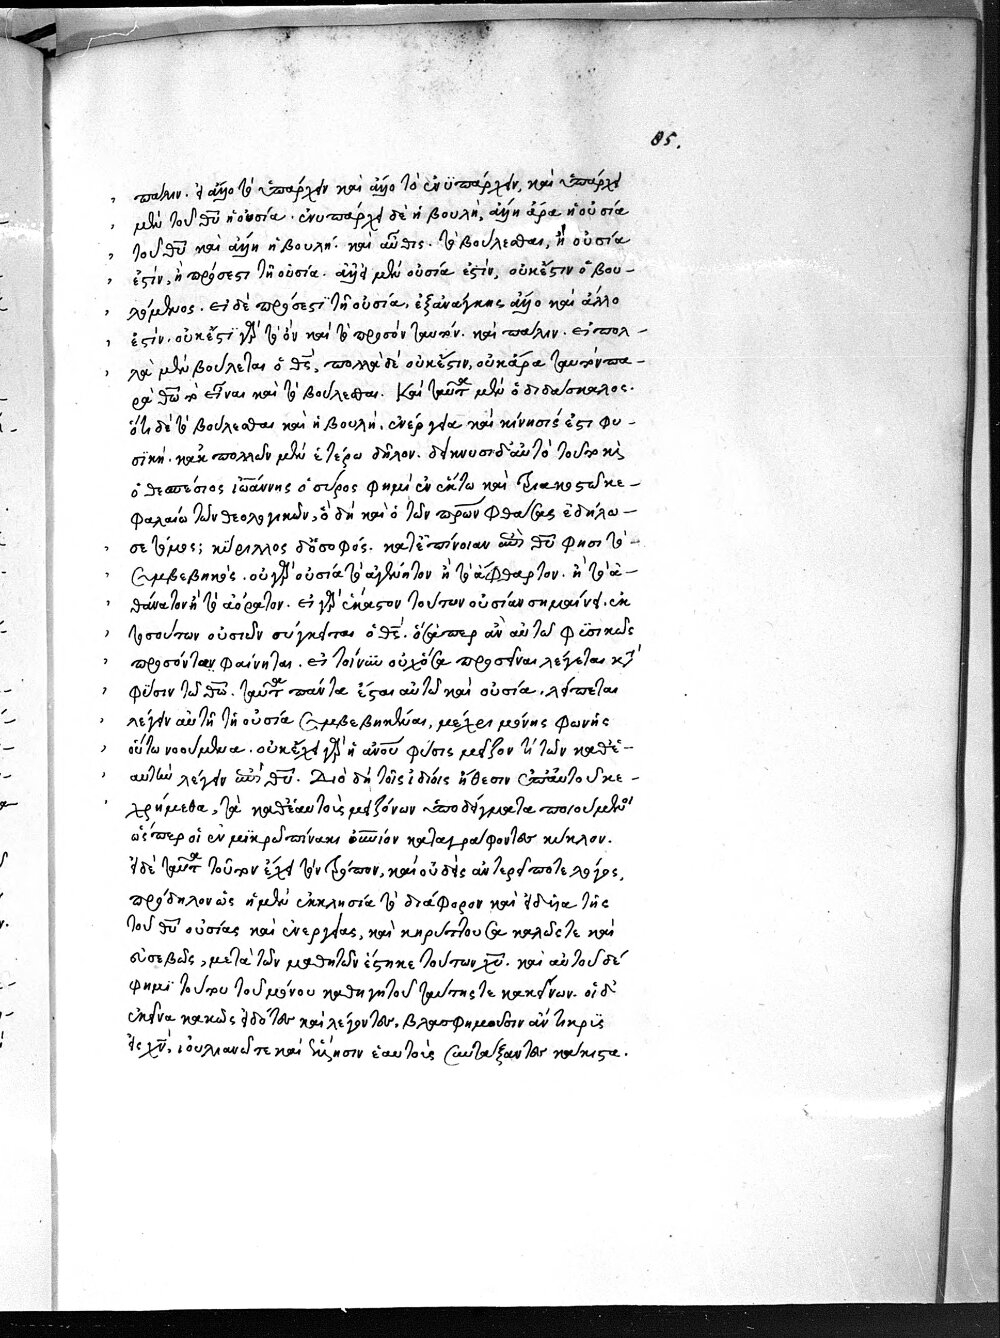 85.
πάλιν. εἰ ἄλλο τὸ ὑπάρχειν καὶ ἄλλο τὸ ἐνυπάρχειν, καὶ ὑπάρχει
μὲν τοῦ θυ ἡ οὐσία. ἐνυπάρχει δὲ ἡ βουλὴ, ἄλλη ἄρα ἡ οὐσία
τοῦ θυ καὶ ἄλλη ἡ βουλή. καὶ αὖθις. τὸ βούλεσθαι, ἢ οὐσία
ἐστὶν, ἢ πρόσεστι τῆ οὐσία. ἀλλ' εἰ μὲν οὐσία ἐστὶν, οὐκ ἔστιν ὁ βου-
λόμενος. εἰ δὲ πρόσεστι τῆ οὐσία, ἐξανάγκης ἄλλο καὶ ἄλλο
ἐστὶν. οὐκ ἔστι γὰρ τὸ ὂν καὶ τὸ προσὸν ταυτόν. καὶ πάλιν. εἰ πολ-
λὰ μὲν βούλεται ὁ θς, πολλὰ δὲ οὐκ ἔστιν, οὐκ ἄρα ταυτὸν πα-
ρὰ θῶ τὸ εἶναι καὶ τὸ βούλεσθαι. Καὶ ταῦτα μὲν ὁ διδάσκαλος.
ὅτι δὲ τὸ βούλεσθαι καὶ ἡ βουλὴ, ἐνέργεια καὶ κίνησις ἐστι φυ-
σική. κἀκ πολλῶν μὲν ἑτέρων δῆλον. δείκνυσι δ' αὐτὸ τουτοῒ
ὁ θεσπέσιος ἰωάννης ὁ σύρος φημὶ ἐν ἕκτω καὶ τριακοστῶ κε-
φαλαίω τῶν θεολογικῶν, ὃ δὴ καὶ ὁ τῶν πρων φθάσας ἐδήλω-
σε τόμος; κύριλλος δ' ὁ σοφός. κατ' ἐπίνοιαν ἐπὶ θυ φησὶ τὸ
συμβεβηκός. οὐ γὰρ οὐσία τὸ ἀγένητον ἢ τὸ ἄφθαρτον. ἢ τὸ ἀ-
θάνατον ἢ τὸ ἀόρατον. εἰ γὰρ ἕκαστον τούτων οὐσίαν σημαίνει, ἐκ
τοσούτων οὐσιῶν σύγκειται ὁ θς. ὅσαπερ ἂν αὐτῶ φυσικῶς
προσόντα φαίνηται. εἰ τοίνυν οὐχ ὅσα προσεῖναι λέγεται κατὰ
φύσιν τῶ θῶ. ταῦτα πάντα ἔσται αὐτῶ καὶ οὐσία. λείπεται
λέγειν αὐτῆ τῆ οὐσία συμβεβηκέναι, μέχρι μόνης φωνῆς
οὕτω νοούμενα. οὐκ ἔχει γὰρ ἡ ἀνου φύσις μεῖζον τι τῶν καθ' ἑ-
αυτὴν λέγειν ἐπὶ θυ. Διὸ δὴ τοῖς ἰδίοις ἤθεσιν ἐπ' αὐτοῦ κε-
χρήμεθα, τὰ καθ' ἑαυτοὺς μειζόνων ὑποδείγματα ποιούμενοι
ὥσπερ οἱ ἐν μικρῶ πίνακι οὐνιον καταγράφοντες κύκλον.
εἰ δὲ ταῦτα τοῦτον ἔχει τὸν τρόπον, καὶ οὐδεὶς ἀντερεῖ ποτὲ λόγος,
πρόδηλον ὡς ἡ μὲν ἐκκλησία τὸ διάφορον καὶ εἰδυῖα τῆς
τοῦ θυ οὐσίας καὶ ἐνεργείας, καὶ κηρύττουσα καλῶς τε καὶ
εὐσεβῶς, μετὰ τῶν μαθητῶν ἕστηκε τούτων χυ. καὶ αὐτοῦ δέ
φημι τούτου τοῦ μόνου καθηγητοῦ ταύτης τε κἀκείνων. οἱ δ'
ἐκεῖνα κακῶς εἰδότες καὶ λέγοντες, βλασφημοῦσιν ἀντικρὺς
εἰς χν, ἰουλιανῶ τε καὶ ἕλλησιν ἑαυτοὺς συντάξαντες κάκιστα.